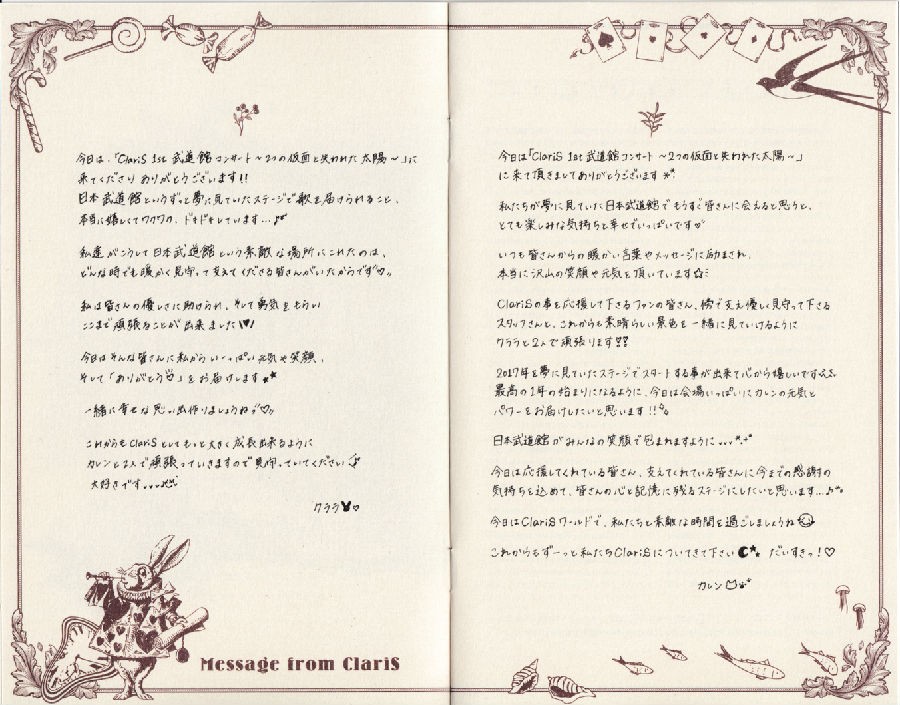 今日は、「ClariS 1st 武道館コンサート ～2つの仮面と失われた太陽～」に
来てくださりありがとうございます!!
日本武道館というずっと夢に見ていたステージで歌を届けられること、
本当に嬉しくてワクワク、ドキドキしています...♪
私達がこうして日本武道館という素敵な場所にこれたのは、
どんな時でも暖かく見守って支えてくださる皆さんがいたからです♡。
私は皆さんの優しさに助けられ、そして勇気をもらい
ここまで頑張ることが出来ました!♡!
今日はそんな皆さんに私からいっぱい元気や笑顔、
そして「ありがとう♡」をお届けします★★
一緒に幸せな思い出作りましょうね♡
これからもClariSとしてもっと大きく成長出来るように
カレンと2人で頑張っていきますので見守っていてください
大好きです...
クララ♡
Message from ClariS
今日は「ClariS 1st 武道館コンサート ～2つの仮面と失われた太陽～」
に来て頂きましてありがとうございます
私たちが夢に見ていた日本武道館でもうすぐ皆さんに会えると思うと、
とても楽しみな気持ちと幸せでいっぱいです♡
いつも皆さんからの暖かい言葉やメッセージに励まされ、
本当に沢山の笑顔や元気を頂いています☆
ClariSの事を応援して下さるファンの皆さん、傍で支え優しく見守って下さる
スタッフさんと、これからも素晴らしい景色を一緒に見ていけるように
クララと2人で頑張ります!!
2017年を夢に見ていたステージでスタートする事が出来て心から嬉しいです
最高の1年の始まりになるように、今日は会場いっぱいにカレンの元気と
パワーをお届けしたいと思います!!
日本武道館がみんなの笑顔で包まれますように...
今日は応援してくれている皆さん、支えてくれている皆さんに今までの感謝の
気持ちを込めて、皆さんの心と記憶に残るステージにしたいと思います...♪
今日はClariSワールドで、私たちと素敵な時間を過ごしましょうね
これからもずーっと私たちClariSについてきて下さい☾★ だいすきっ!♡
カレン